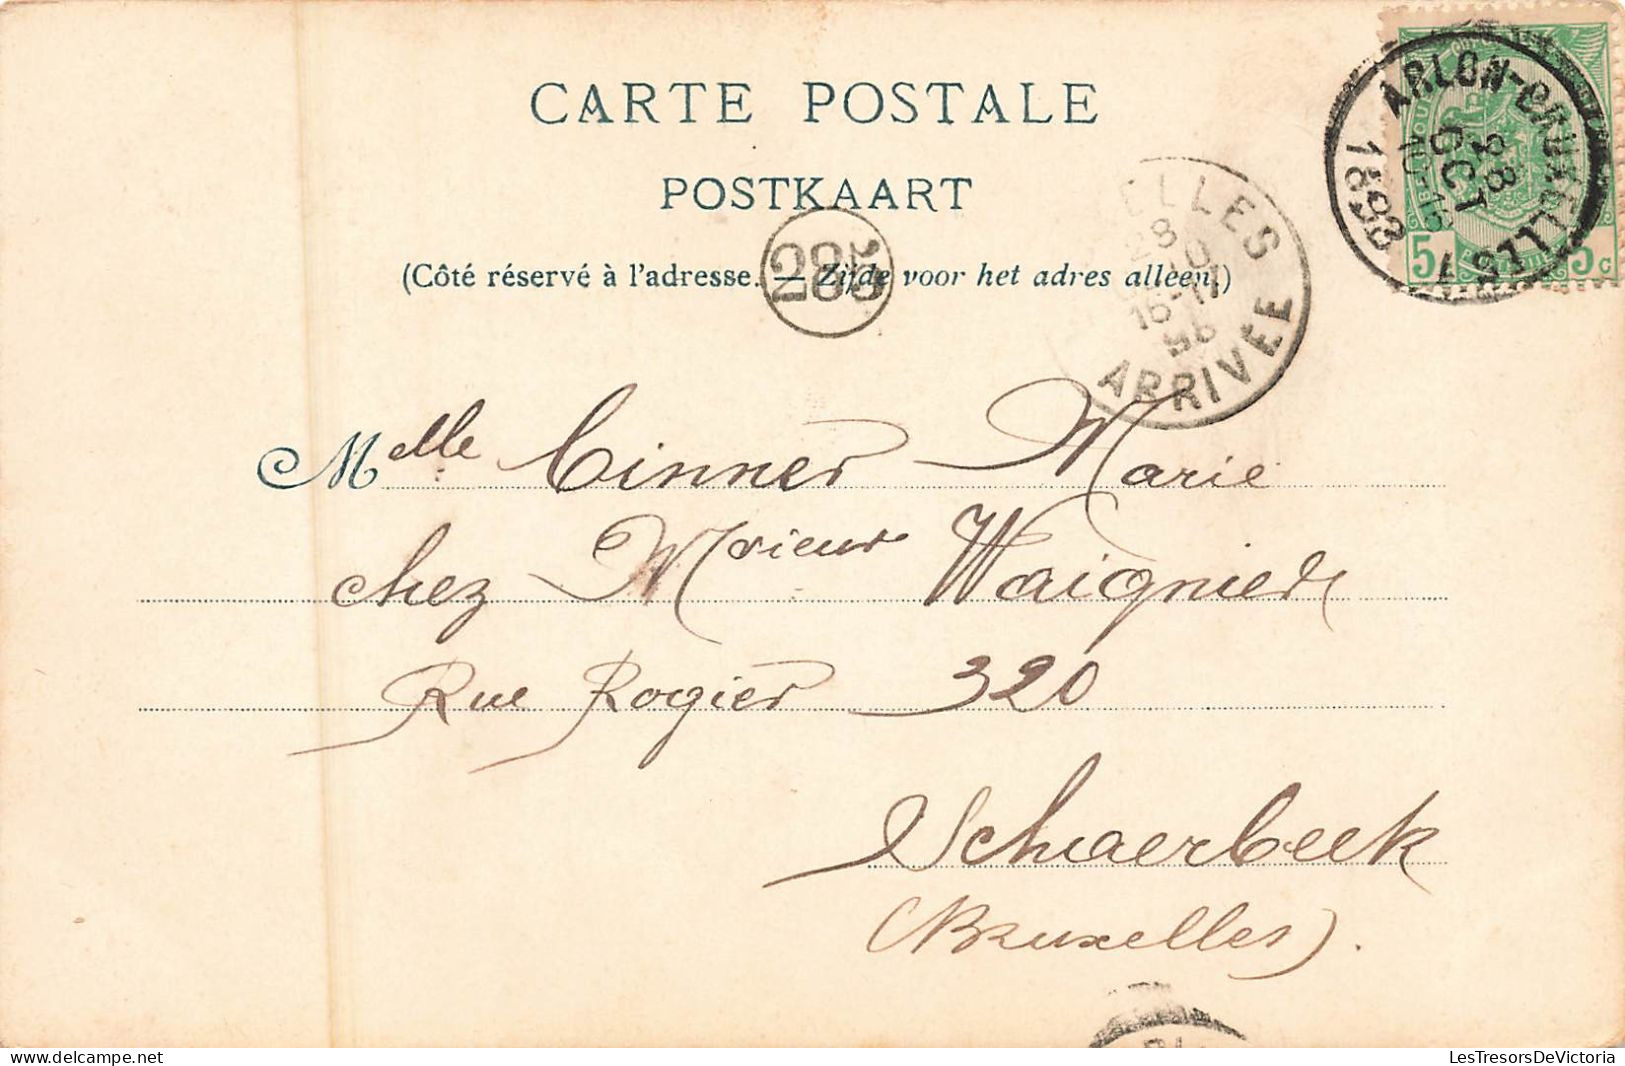 CARTE POSTALE
POSTKAART
(Côté réservé à l'adresse. — Zijde voor het adres alleen.)
ARLON-BRUXELLES 7
28
OCT
1898
ELLES
28
10
16-17
ARRIVEE
5 5c
Melle Cinner Marie
chez Mrieur Waignier
Rue Rogier 320
Schaerbeek
(Bruxelles).
LesTresorsDeVictoria